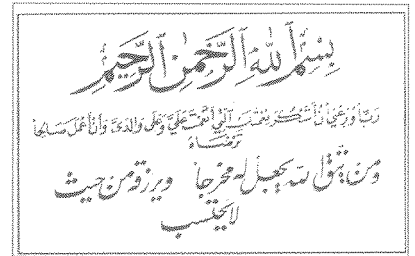 بِسْمِ ٱللَّهِ ٱلرَّحْمَٰنِ ٱلرَّحِيمِ
رَبِّ أَوْزِعْنِي أَنْ أَشْكُرَ نِعْمَتَكَ ٱلَّتِي أَنْعَمْتَ عَلَيَّ وَعَلَى وَالِدَيَّ وَأَنْ أَعْمَلَ صَالِحًا
تَرْضَاهُ
ومن يتق الله يجعل له مخرجا ويرزقه من حيث
لا يحتسب